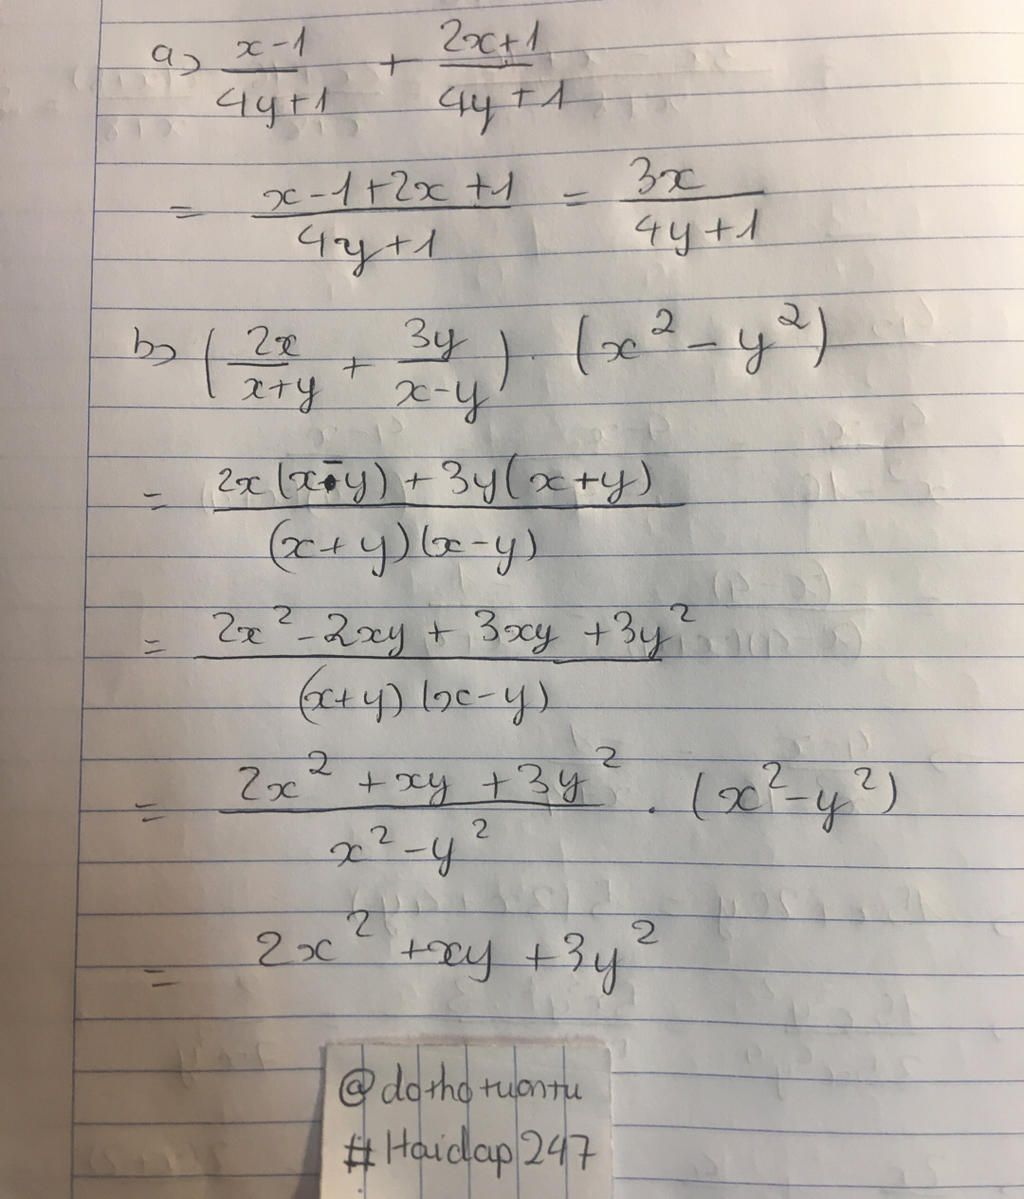 a) (x-1)/(4y+1) + (2x+1)/(4y+1)
= (x-1+2x+1)/(4y+1) = 3x/(4y+1)
b) (2x/(x+y) + 3y/(x-y)) . (x² - y²)
= (2x(x-y) + 3y(x+y))/((x+y)(x-y))
= (2x² - 2xy + 3xy + 3y²)/((x+y)(x-y))
= (2x² + xy + 3y²)/(x² - y²) . (x² - y²)
= 2x² + xy + 3y²
@dothotuontu
#Hoidap247